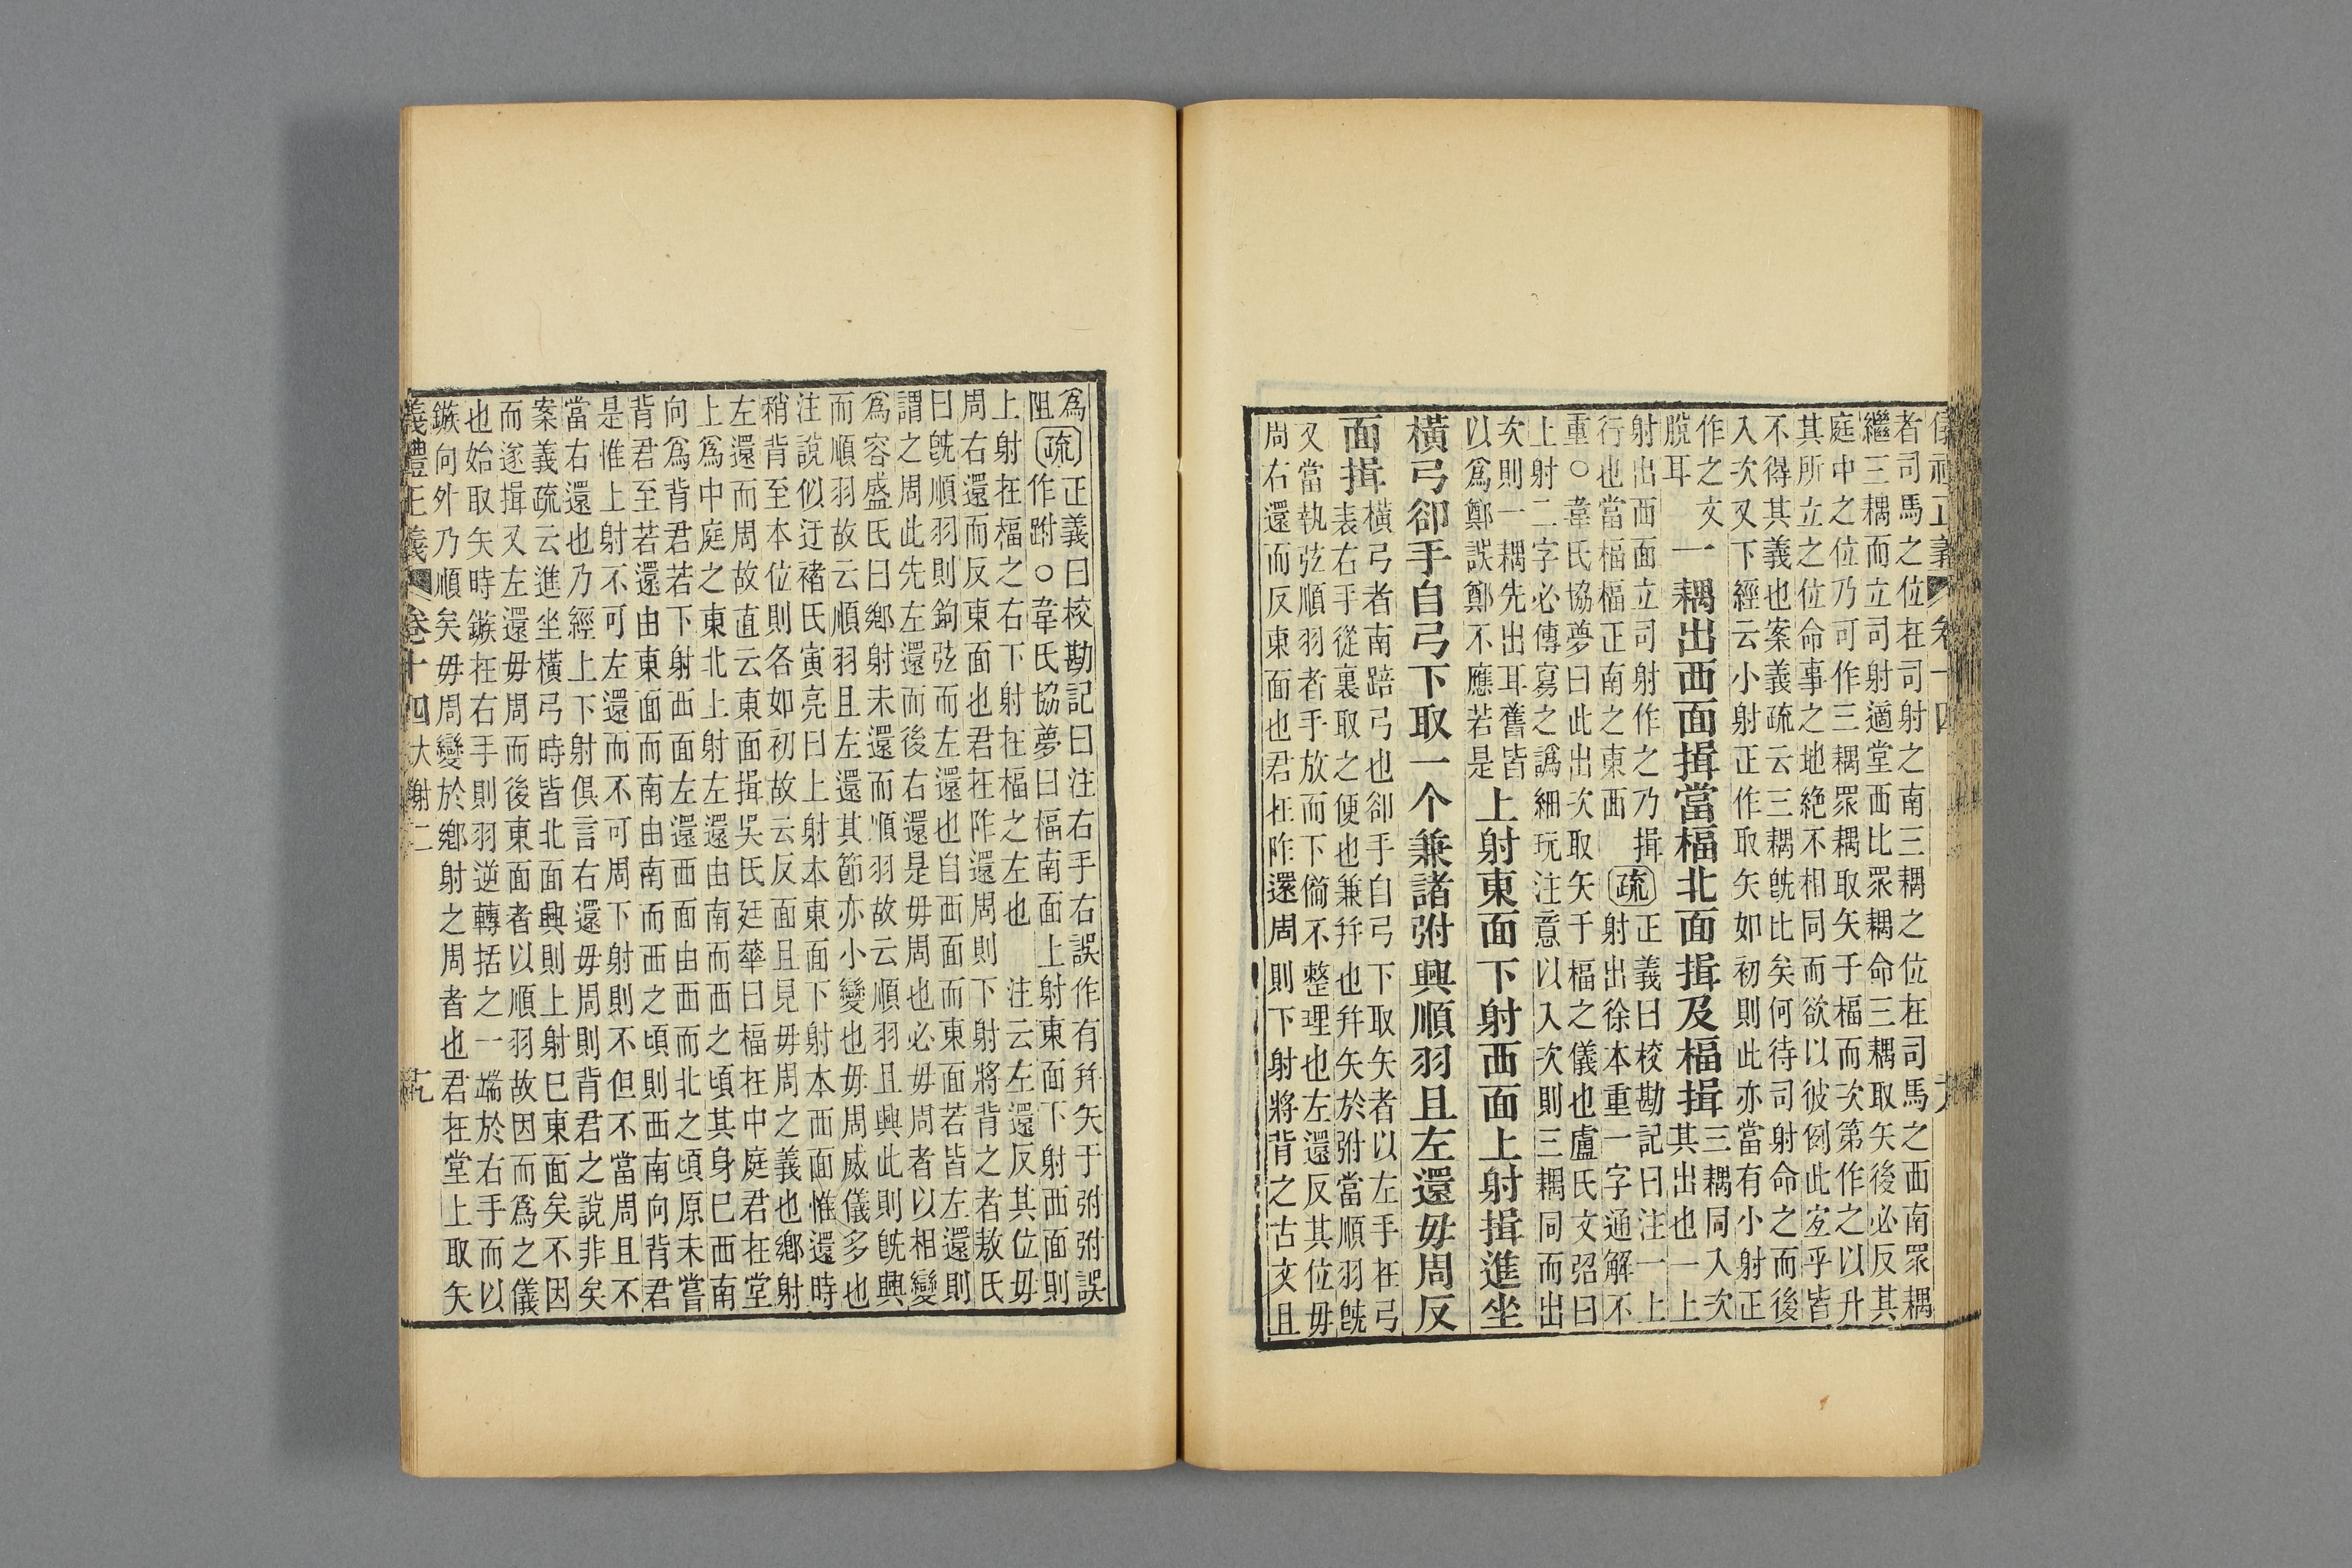 儀禮正義 卷十四
者司馬之位在司射之南三耦之位在司馬之西南眾耦
繼三耦而立司射適堂西比眾耦命三耦取矢後必反其
庭中之位乃可作三耦眾耦取矢于楅而次第作之以升
其所立之位命事之地絶不相同而欲以彼例此宐乎皆
不得其義也案義疏云三耦旣比矣何待司射命之而後
入次又下經云小射正作取矢如初則此亦當有小射正
作之文
脫耳
一耦出西面揖當楅北面揖及楅揖
三耦同入次
其出也一上
射出西面立司射作之乃揖
行也當楅楅正南之東西
疏
正義曰校勘記曰注一上
射出徐本重一字通解不
重○韋氏協夢曰此出次取矢于楅之儀也盧氏文弨曰
上射二字必傳寫之譌細玩注意以入次則三耦同而出
次則一耦先出耳舊皆
以爲鄭誤鄭不應若是
上射東面下射西面上射揖進坐
橫弓卻手自弓下取一个兼諸弣興順羽且左還毋周反
面揖
橫弓者南踣弓也卻手自弓下取矢者以左手在弓
表右手從裏取之便也兼幷也幷矢於弣當順羽旣
又當執弦順羽者手放而下備不整理也左還反其位毋
周右還而反東面也君在阼還周則下射將背之古文且
爲
阻
疏
正義曰校勘記曰注右手右誤作有幷矢于弣弣誤
作跗○韋氏協夢曰楅南面上射東面下射西面則
上射在楅之右下射在楅之左也 注云左還反其位毋
周右還而反東面也君在阼還周則下射將背之者敖氏
曰旣順羽則鉤弦而左還也自西面而東面若皆左還則
謂之周此先左還而後右還是毋周也必毋周者以相變
爲容盛氏曰鄉射未還而順羽故云順羽且興此則旣興
而順羽故云順羽且左還其節亦小變也毋周威儀多也
注說似迂褚氏寅亮曰上射本東面下射本西面惟還時
稍背至本位則各如初故云反面且見毋周之義也鄉射
左還而周故直云東面揖吳氏廷華曰楅在中庭君在堂
上爲中庭之東北上射左還由南而西之頃其身已西南
向爲背君若下射西面左還西面由西而北之頃原未嘗
背君至若還由東面而南由南而西之頃則西南向背君
是惟上射不可左還而不可周下射則不但不當周且不
當右還也乃經上下射俱言右還毋周則背君之說非矣
案義疏云進坐橫弓時皆北面興則上射巳東面矣不因
而遂揖又左還毋周而後東面者以順羽故因而爲之儀
也始取矢時鏃在右手則羽逆轉括之一端於右手而以
鏃向外乃順矣毋周變於鄉射之周者也君在堂上取矢
義禮正義 卷十四 大射二 九